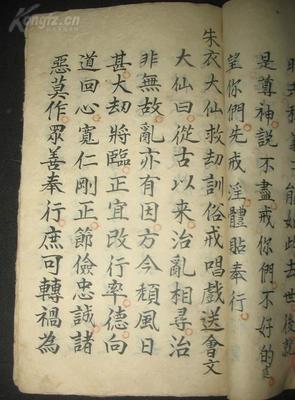 明夫利義　能如此去世後說
是尊神說不盡戒你們不好的
望你們先戒淫體貼奉行
朱衣大仙救劫訓俗戒唱戲送會文
大仙曰從古以来治亂相尋治
非無故亂亦有因方今頹風日
甚大劫將臨正宜改行率德向
道回心寬仁剛正節儉忠誠諸
惡莫作眾善奉行庶可轉禍為
Kongfz.cn